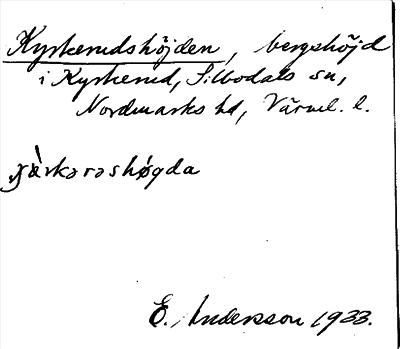 Kyrkerudshöjden, bergshöjd
i Kyrkerud, Silbodals sn,
Nordmarks hd, Värml. l.
çæ̀rkərəshøgda
E. Andersson 1933.